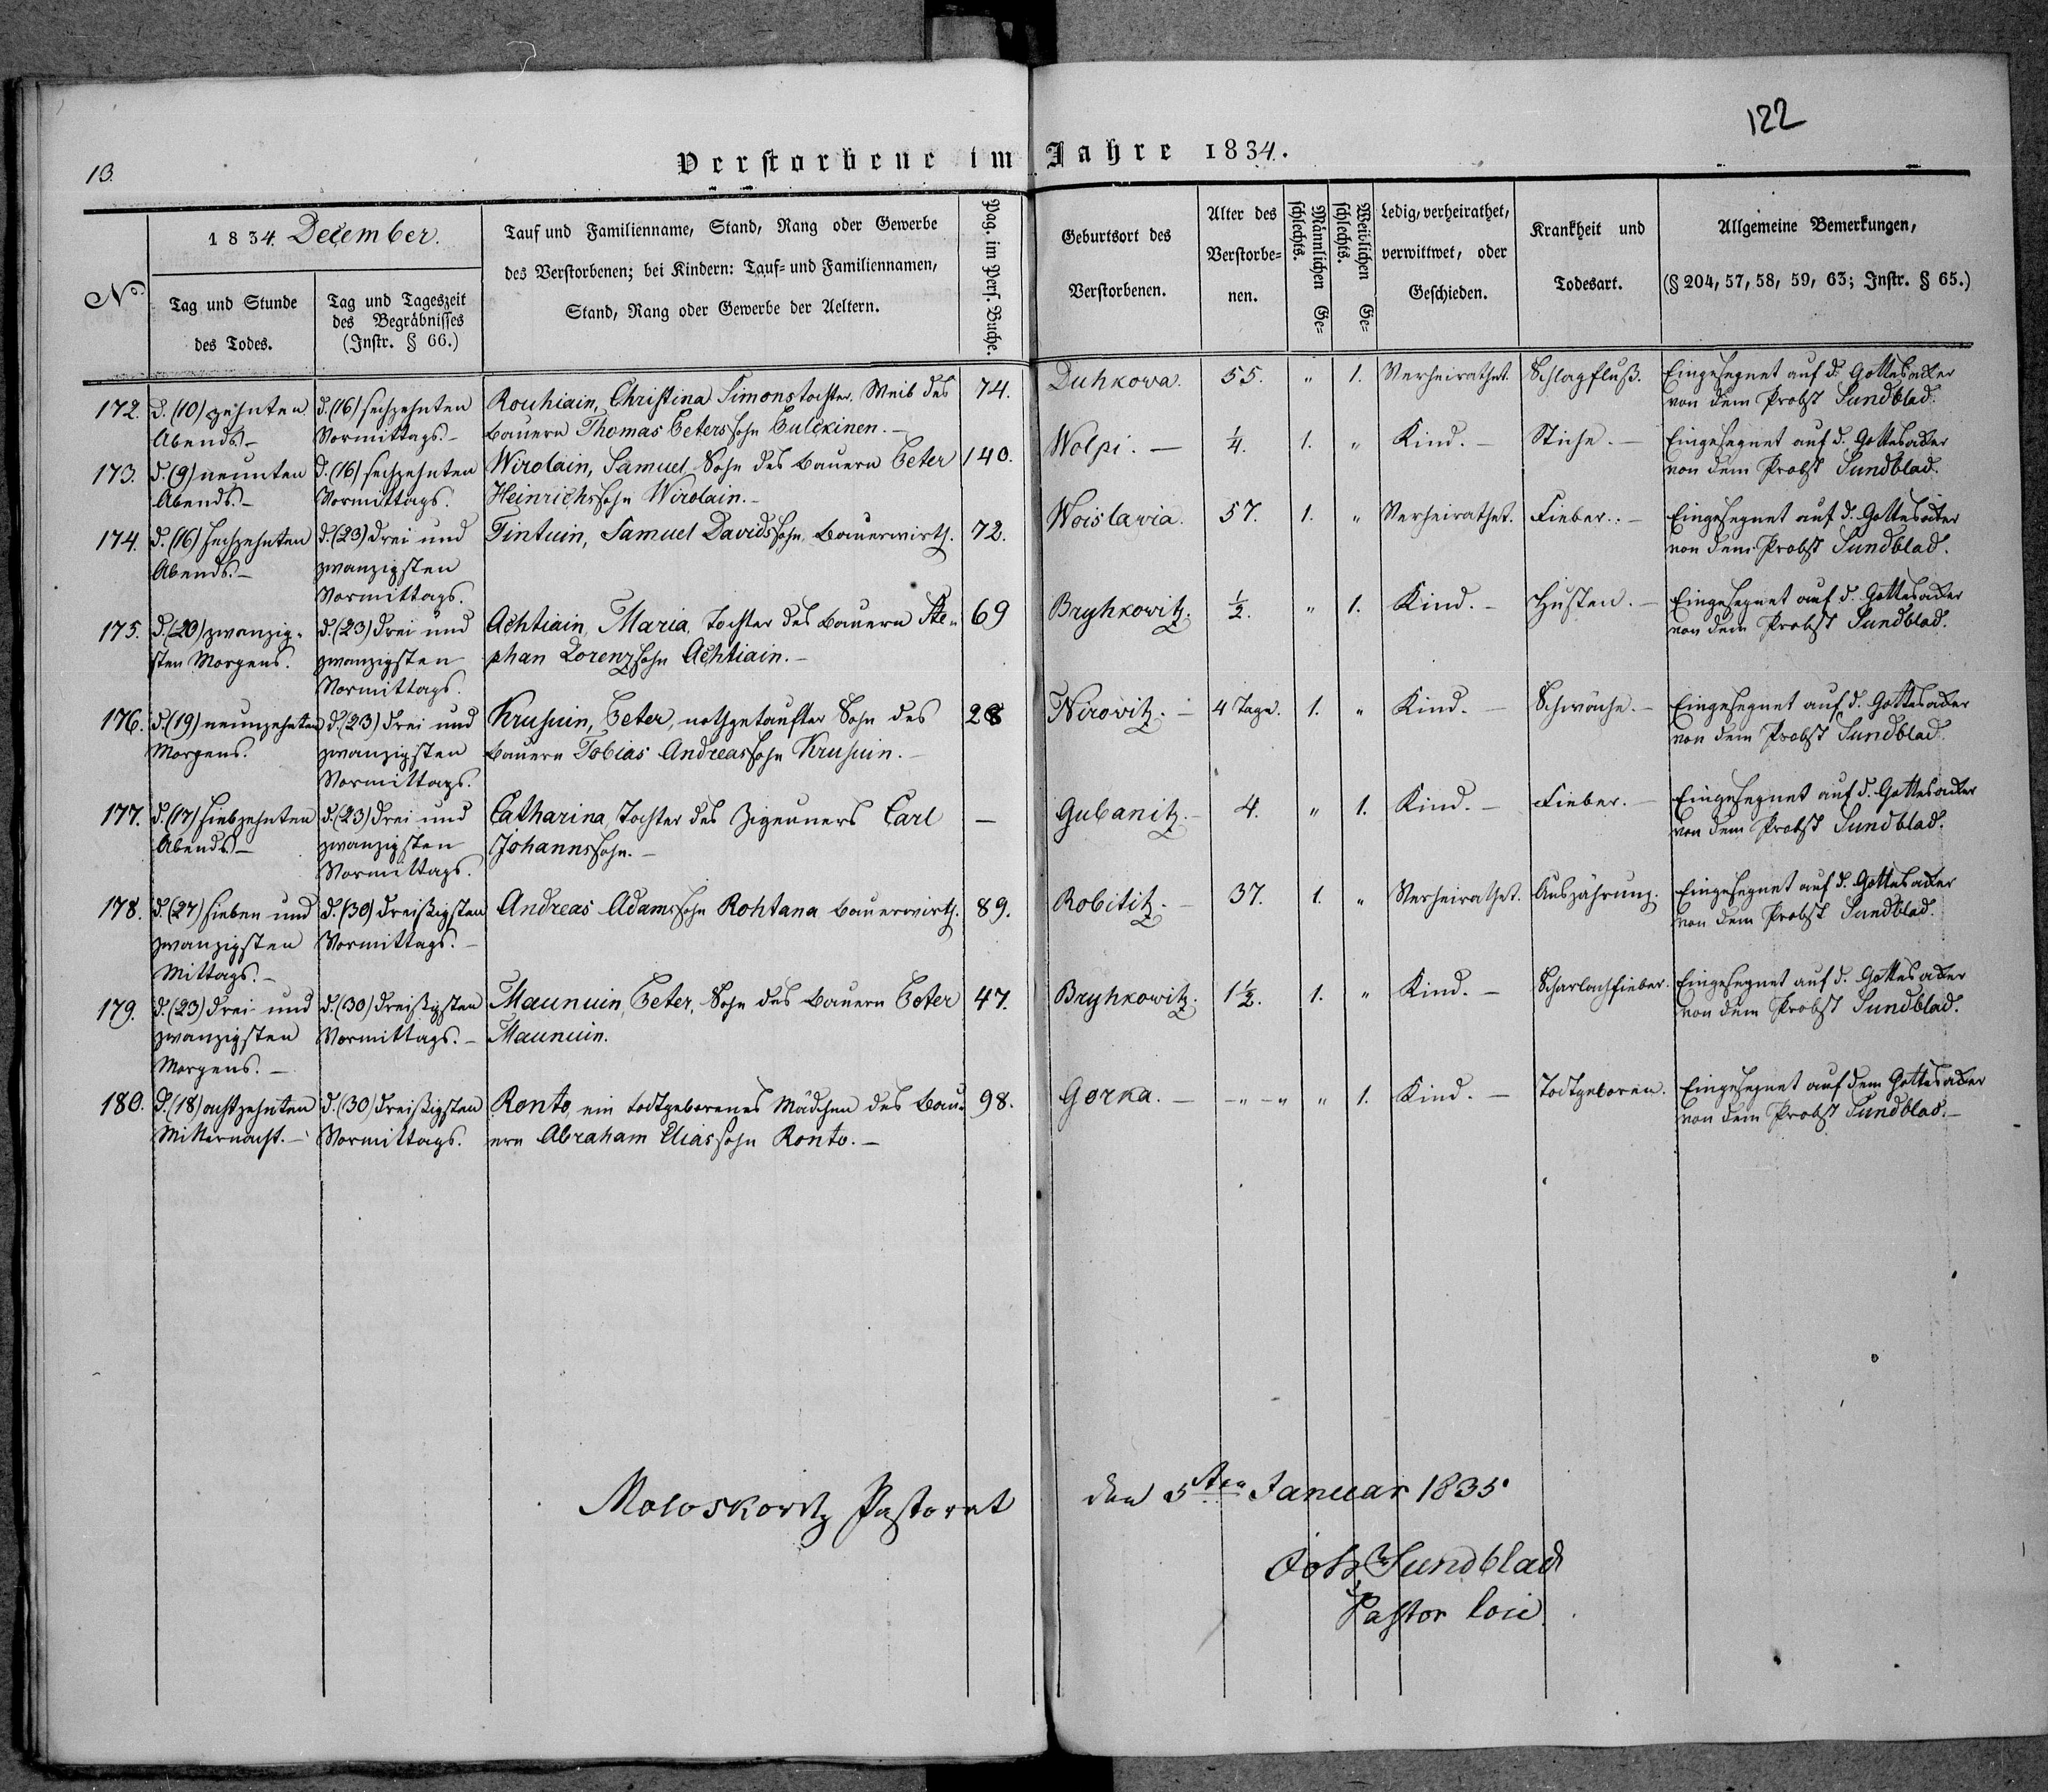 122
13.
Verstorbene im Jahre 1834.
No.
1834. December.
Tag und Stunde
des Todes.
Tag und Tageszeit
des Begräbnisses
(Instr. § 66.)
Tauf und Familienname, Stand, Rang oder Gewerbe
des Verstorbenen; bei Kindern: Tauf- und Familiennamen,
Stand, Rang oder Gewerbe der Aeltern.
Pag. im Pers. Buche.
Geburtsort des
Verstorbenen.
Alter des
Verstorbe-
nen.
Männlichen Ge-
schlechts.
Weiblichen Ge-
schlechts.
Ledig, verheirathet,
verwittwet, oder
Geschieden.
Krankheit und
Todesart.
Allgemeine Bemerkungen,
(§ 204, 57, 58, 59, 63; Instr. § 65.)
172. d. (10) zehnten d. (16) sechzehnten Rouhiain, Christina Simonstochter, Weib des 74. Duhkowa. 55. " 1. Verheirathet. Schlagfluß. Eingesegnet auf d. Gottesacker
Abends.- Vormittags.- Bauern Thomas Peterssohn Pulckinen.- von dem Probst Sundblad.
173. d. (9) neunten d. (16) sechzehnten Wirolain, Samuel, Sohn des Bauern Peter 140. Wolpi. - 1/4. 1. " Kind. - Stiche. - Eingesegnet auf d. Gottesacker
Abends.- Vormittags. Heinrichssohn Wirolain.- von dem Probst Sundblad.
174. d. (16) sechzehnten d. (23) drei und Tintuin, Samuel Davidssohn, Bauerwirth. 72. Woislawia. 57. 1. " Verheirathet. Fieber. - Eingesegnet auf d. Gottesacker
Abends.- zwanzigsten von dem Probst Sundblad.
Vormittags.
175. d. (20) zwanzig- d. (23) drei und Achtiain, Maria, Tochter des Bauern Ste- 69 Bryhkowitz. 1/2. " 1. Kind. - Husten. - Eingesegnet auf d. Gottesacker
sten Morgens. zwanzigsten phan Lorenzsohn Achtiain.- von dem Probst Sundblad.
Vormittags.
176. d. (19) neunzehnten d. (23) drei und Krusuin, Peter, nothgetaufter Sohn des 28 Nirovitz. - 4 Tage. 1. " Kind. - Schwäche. - Eingesegnet auf d. Gottesacker
Morgens. zwanzigsten Bauern Tobias Andreassohn Krusuin.- von dem Probst Sundblad.
Vormittags.
177. d. (17) siebzehnten d. (23) drei und Catharina, Tochter des Zigeuners Carl - Gubanitz. - 4. " 1. Kind. - Fieber. - Eingesegnet auf d. Gottesacker
Abends- zwanzigsten Johannssohn.- von dem Probst Sundblad.
Vormittags.
178. d. (27) sieben und d. (30) dreißigsten Andreas Adamssohn Rohtana Bauerwirth. 89. Robititz. - 37. 1. " Verheirathet. Auszährung. Eingesegnet auf d. Gottesacker
zwanzigsten Vormittags.- von dem Probst Sundblad.
Mittags.-
179. d. (23) drei und d. (30) dreißigsten Maunuin, Peter, Sohn des Bauern Peter 47. Bryhkowitz. 1 1/2. 1. " Kind. - Scharlachfieber. Eingesegnet auf d. Gottesacker
zwanzigsten Vormittags.- Maunuin. von dem Probst Sundblad.
Morgens.-
180. d. (18) achtzehnten d. (30) dreißigsten Ronto, ein todtgeborenes Mädchen des Bau- 98. Gorka. - -"-" " 1. Kind. - Todtgeboren. Eingesegnet auf dem Gottesacker
Mitternacht.- Vormittags. ern Abraham Eliassohn Ronto.- von dem Probst Sundblad.-
Moloskowitz Pastorat den 5ten Januar 1835.
Joh. Sundblad
Pastor loci.